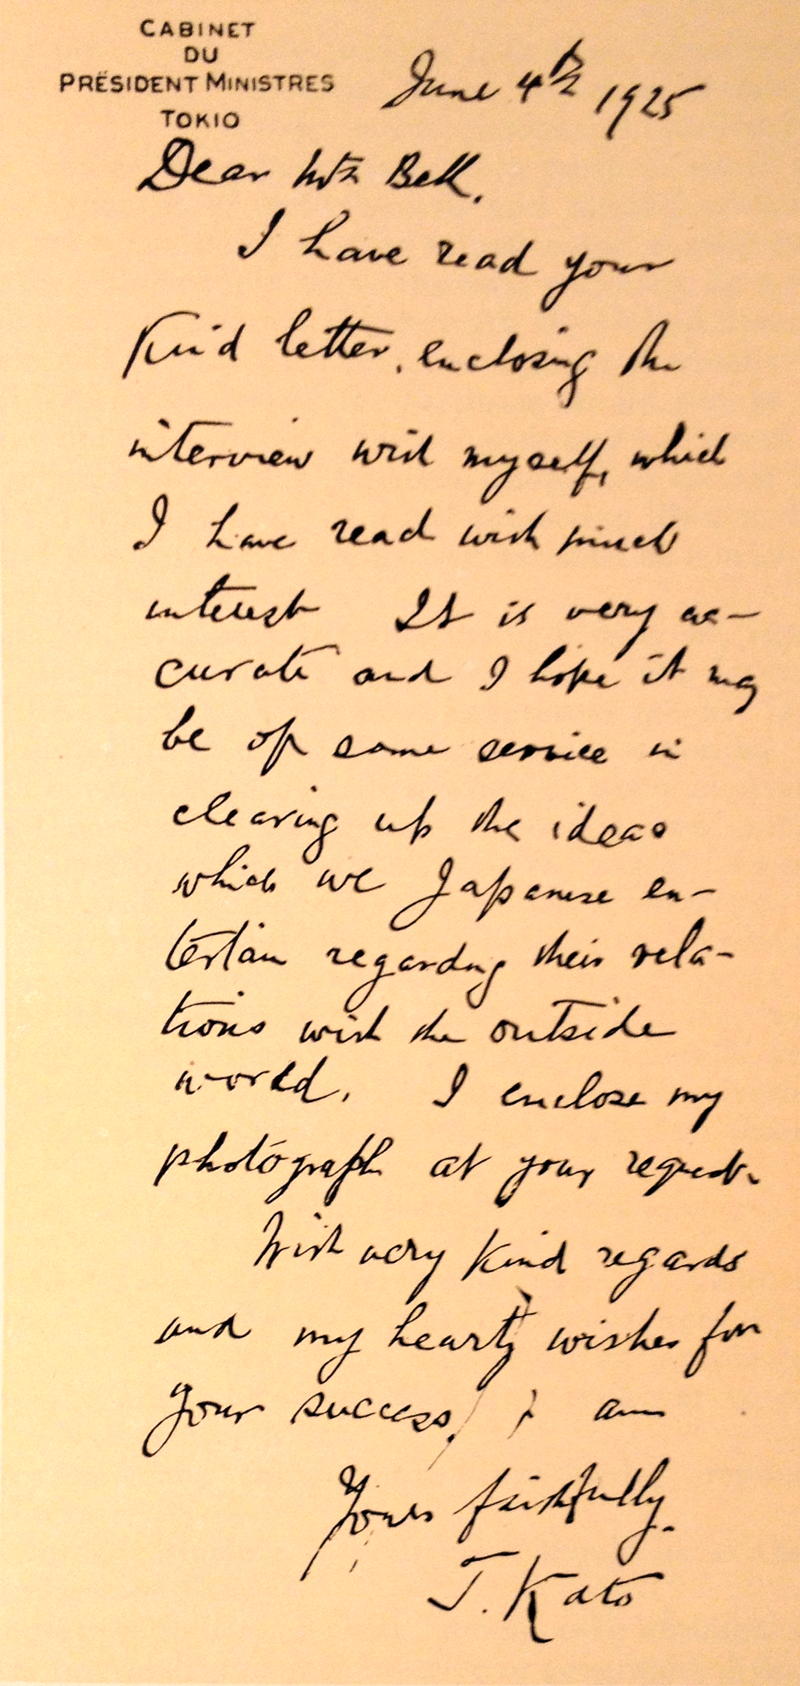 CABINET
DU
PRÉSIDENT MINISTRES
TOKIO
June 4th 1925
Dear Mr. Bell,
I have read your
kind letter, enclosing the
interview with myself, which
I have read with much
interest It is very ac-
curate and I hope it may
be of some service in
clearing up the ideas
which we Japanese en-
tertain regarding their rela-
tions with the outside
world. I enclose my
photograph at your request.
With very kind regards
and my hearty wishes for
your success, I am
Yours faithfully.
T. Kato